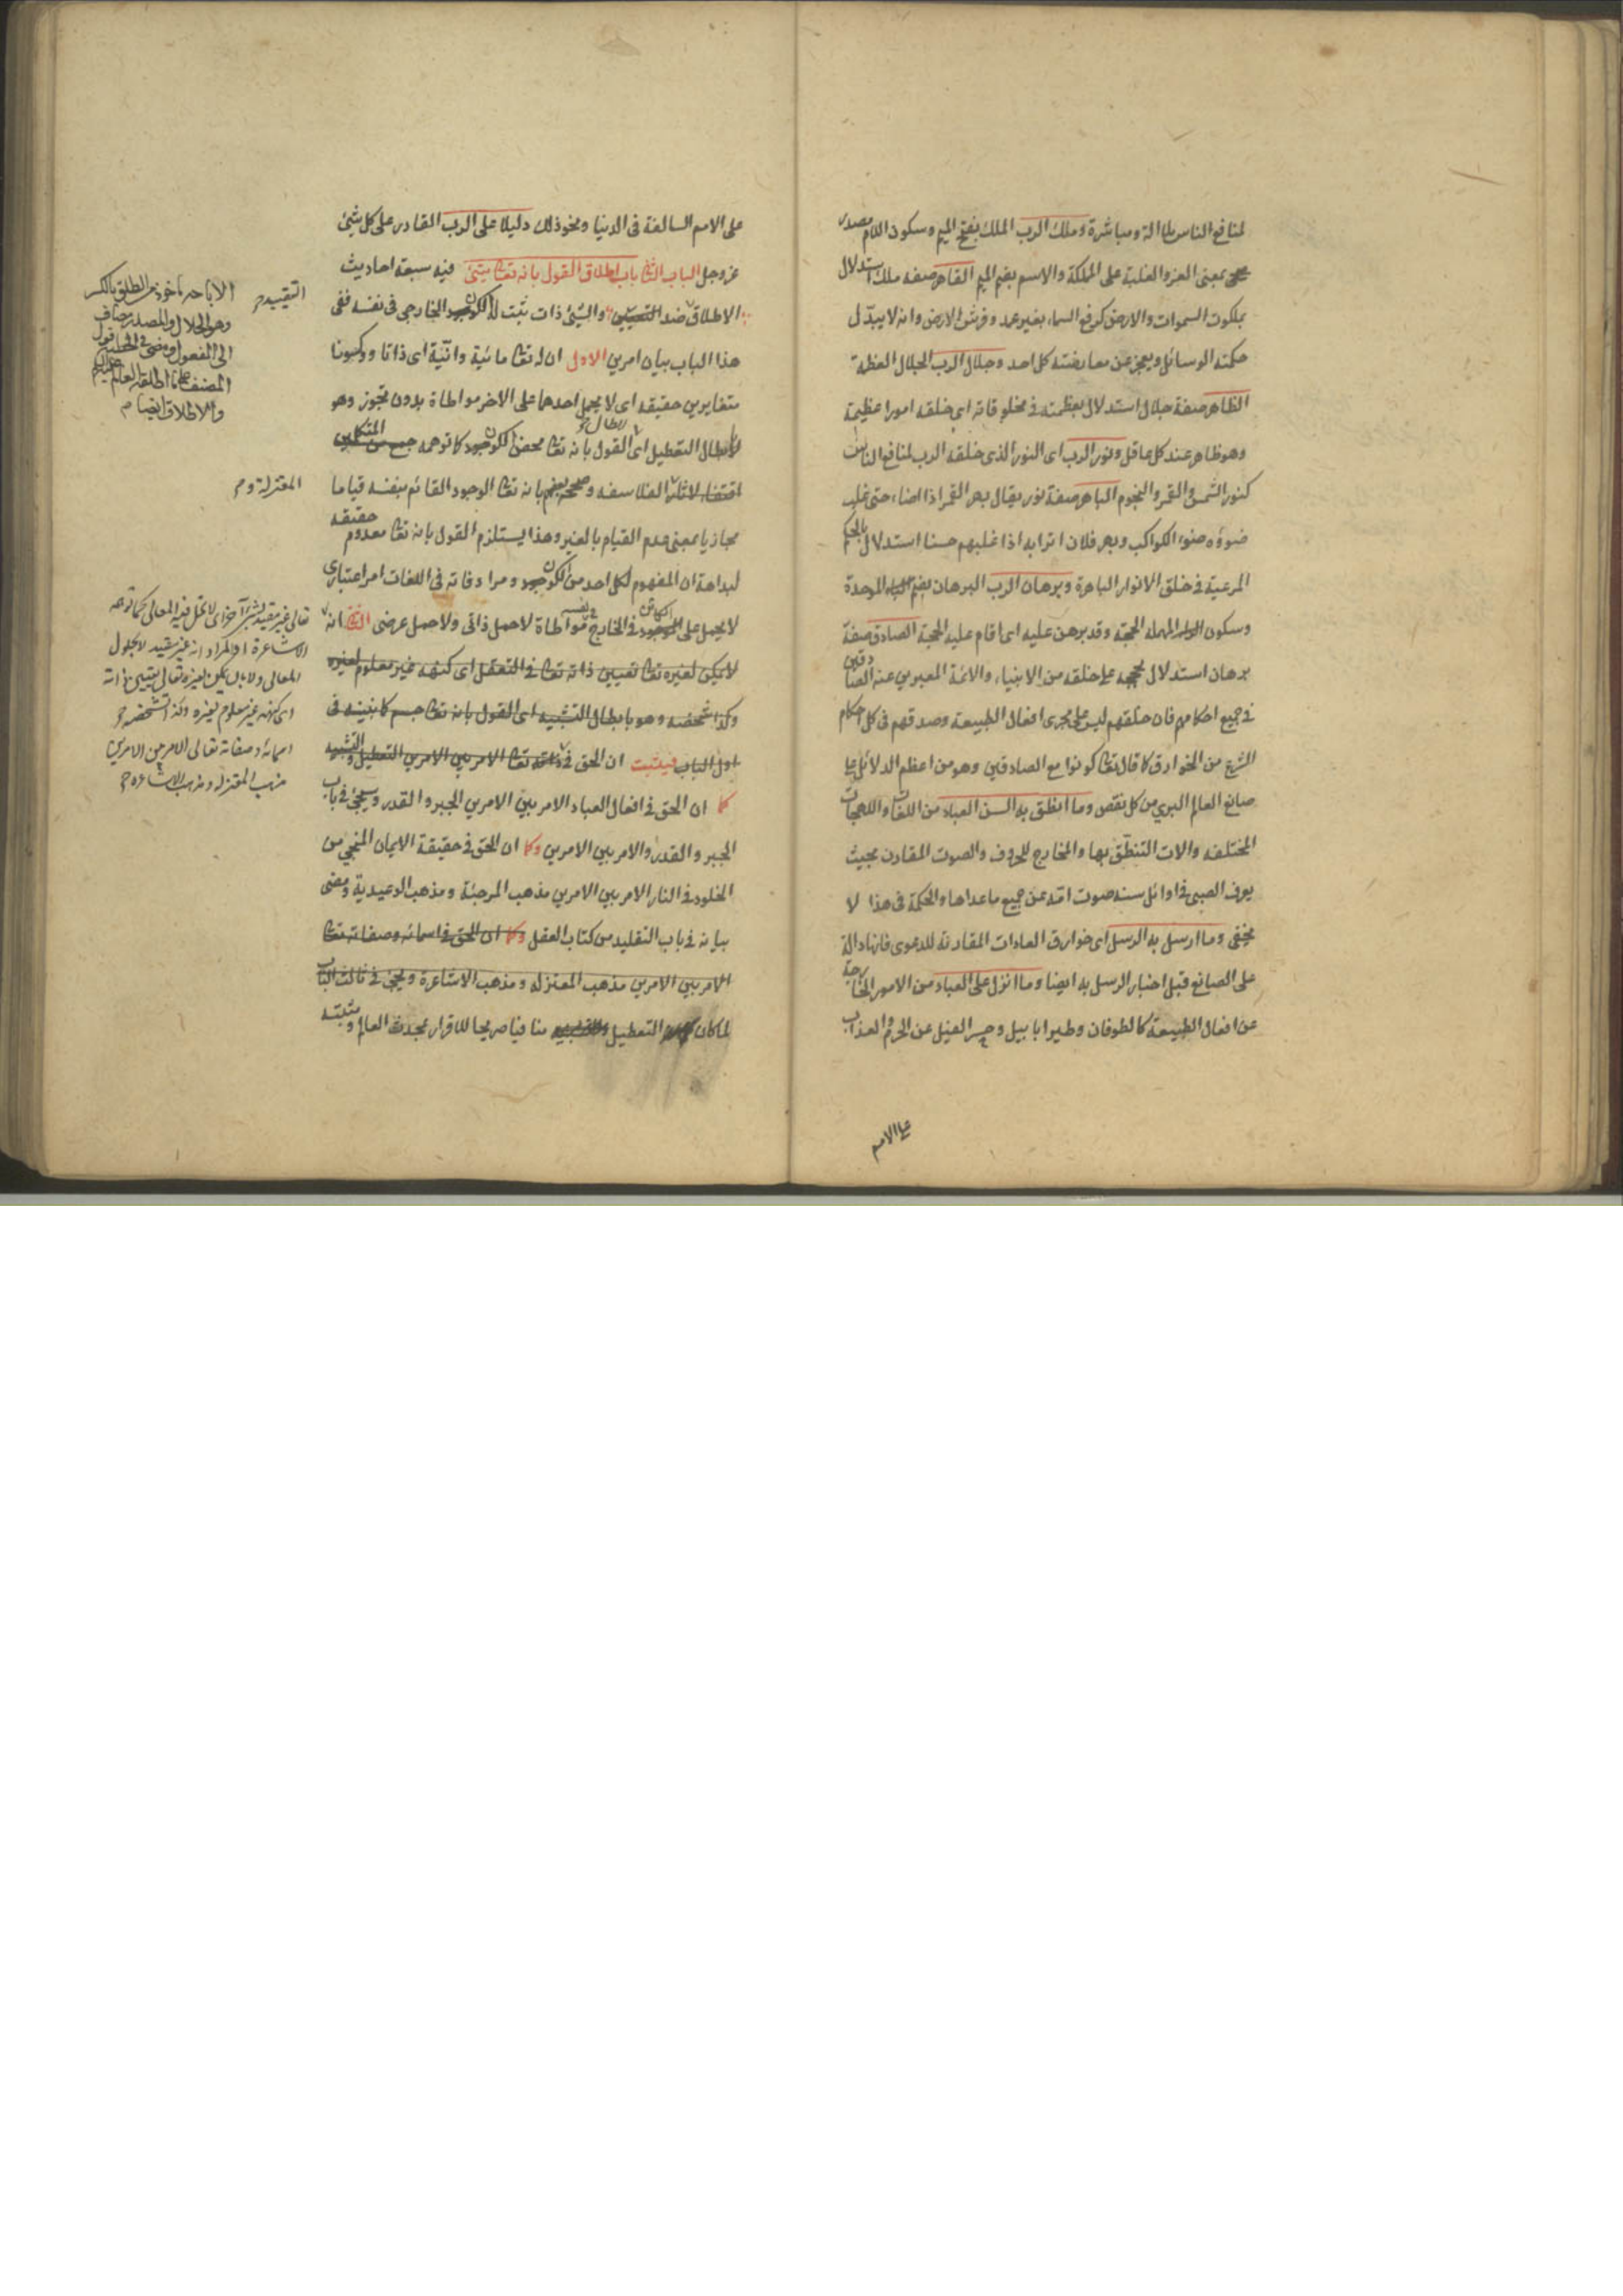 لمنافع الناس بلا آلة ومباشرة وملك الرب الملك بفتح الميم وسكون اللام مصدر
بمعنى العز والغلبة على المملكة والاسم بضم الميم القاهر صفة ملك استدلال
بملكوت السموات والارض كرفع السماء بغير عمد وفرش الارض وانه لا يبدّل
حكمته الوسائل ويعجز عن معارضته كل احد وجلال الرب الجلال العظمة
الظاهر صفة جلال استدلال بعظمته في مخلوقاته اي خلقه امورا عظيمة
وهو ظاهر عند كل عاقل ونور الرب اي النور الذي خلقه الرب لمنافع الناس
كنور الشمس والقمر والنجوم الباهر صفة نور يقال بهر القمر اذا اضاء حتى غلب
ضوؤه ضوء الكواكب وبهر فلان اترابه اذا غلبهم حسنا استدلال بالحكم
المرعية في خلق الانوار الباهرة وبرهان الرب البرهان بضم الباء الموحدة
وسكون الراء المهملة الحجة وقد برهن عليه اي اقام عليه الحجة الصادق صفة
برهان استدلال بحججه على خلقه من الانبياء والائمة المعبرين عنه الصادقين
في جميع احكامهم فان خلقهم ليس على مجرى افعال الطبيعة وصدقهم في كل احكام
الشرع من الخوارق كما قال تعالى كونوا مع الصادقين وهو من اعظم الدلائل على
صانع العالم البري من كل نقص وما انطق به السن العباد من اللغات واللهجات
المختلفة والات التنطّق بها والمخارج للحروف والصوت المقارن بحيث
يعرف الصبي في اوائل سنه صوت امّه عن جميع ما عداها والحكمة في هذا لا
يخفى وما ارسل به الرسل اي خوارق العادات المقارنة للدعوى فانها دالة
على الصانع قبل اخبار الرسل به ايضا وما انزل على العباد من الامور الخارجة
عن افعال الطبيعة كالطوفان وطيرا ابابيل وحبس الفيل عن الحرم والعذاب
على الامم
على الامم السالفة في الدنيا ونحو ذلك دليلا على الرب القادر على كل شيئ
عز وجل الباب الثاني باب اطلاق القول بانه تعالى شيئ فيه سبعة احاديث
الاطلاق ضد والشيئ ذات ثبت له الكون الخارجي في نفسه ففي
هذا الباب بيان امرين الاول ان له تعالى مائية وانّية اي ذاتا وكونا
متغايرين حقيقة اي لا يحمل احدهما على الاخر مواطاة بدون تجوز وهو
لابطال التعطيل اي القول بانه تعالى محض الكون كما توهمه
الفلاسفة بانه تعالى الوجود القائم بنفسه قياما
مجازيا بمعنى عدم القيام بالغير وهذا يستلزم القول بانه تعالى معدوم حقيقة
لبداهة ان المفهوم لكل احد من الكون ومرادفاته في اللغات امر اعتباري
لا يحمل على الكائن في الخارج في نفسه مواطاة لا حمل ذاتي ولا حمل عرضي الثاني انه
لا يمكن لغيره تعالى تعيين ذاته تعالى في التعقل اي كنهه غير معلوم لغيره
وكذا تشخصه وهو بابطال التشبيه اي القول بانه تعالى جسم كما نبينه في
اول الباب فيثبت ان الحق في ذاته تعالى الامر بين الامرين التعطيل والتشبيه
كما ان الحق في افعال العباد الامر بين الامرين الجبر والقدر وسيجيئ في باب
الجبر والقدر والامر بين الامرين وكما ان الحق في حقيقة الايمان المنجي من
الخلود في النار الامر بين الامرين مذهب المرجئة ومذهب الوعيدية ومضى
بيانه في باب التقليد من كتاب العقل وكما ان الحق في اسمائه وصفاته تعالى
الامر بين الامرين مذهب المعتزلة ومذهب الاشاعرة ويجيئ في ثالث الباب
لما كان التعطيل منافيا صريحا للاقرار بمحدث العالم ومثبته
التقييد
الاباحة ماخوذ من الطلق بالكسر
وهو الحلال والمصدر مضاف
الى المفعول ومضى في الخطبة قول
المصنف
والاطلاق ايضا
المعتزلة و
تعالى غير مقيد بشيء آخر اي لا تحل فيه المعاني كما توهمه
الاشاعرة او المراد انه غير مقيد لا بحلول
المعاني ولا بل يمكن لغيره تعالى تعيين ذاته
اي كنهه غير معلوم لغيره وكذا تشخصه
اسمائه وصفاته تعالى الامر بين الامرين
مذهب المعتزلة ومذهب الاشاعرة